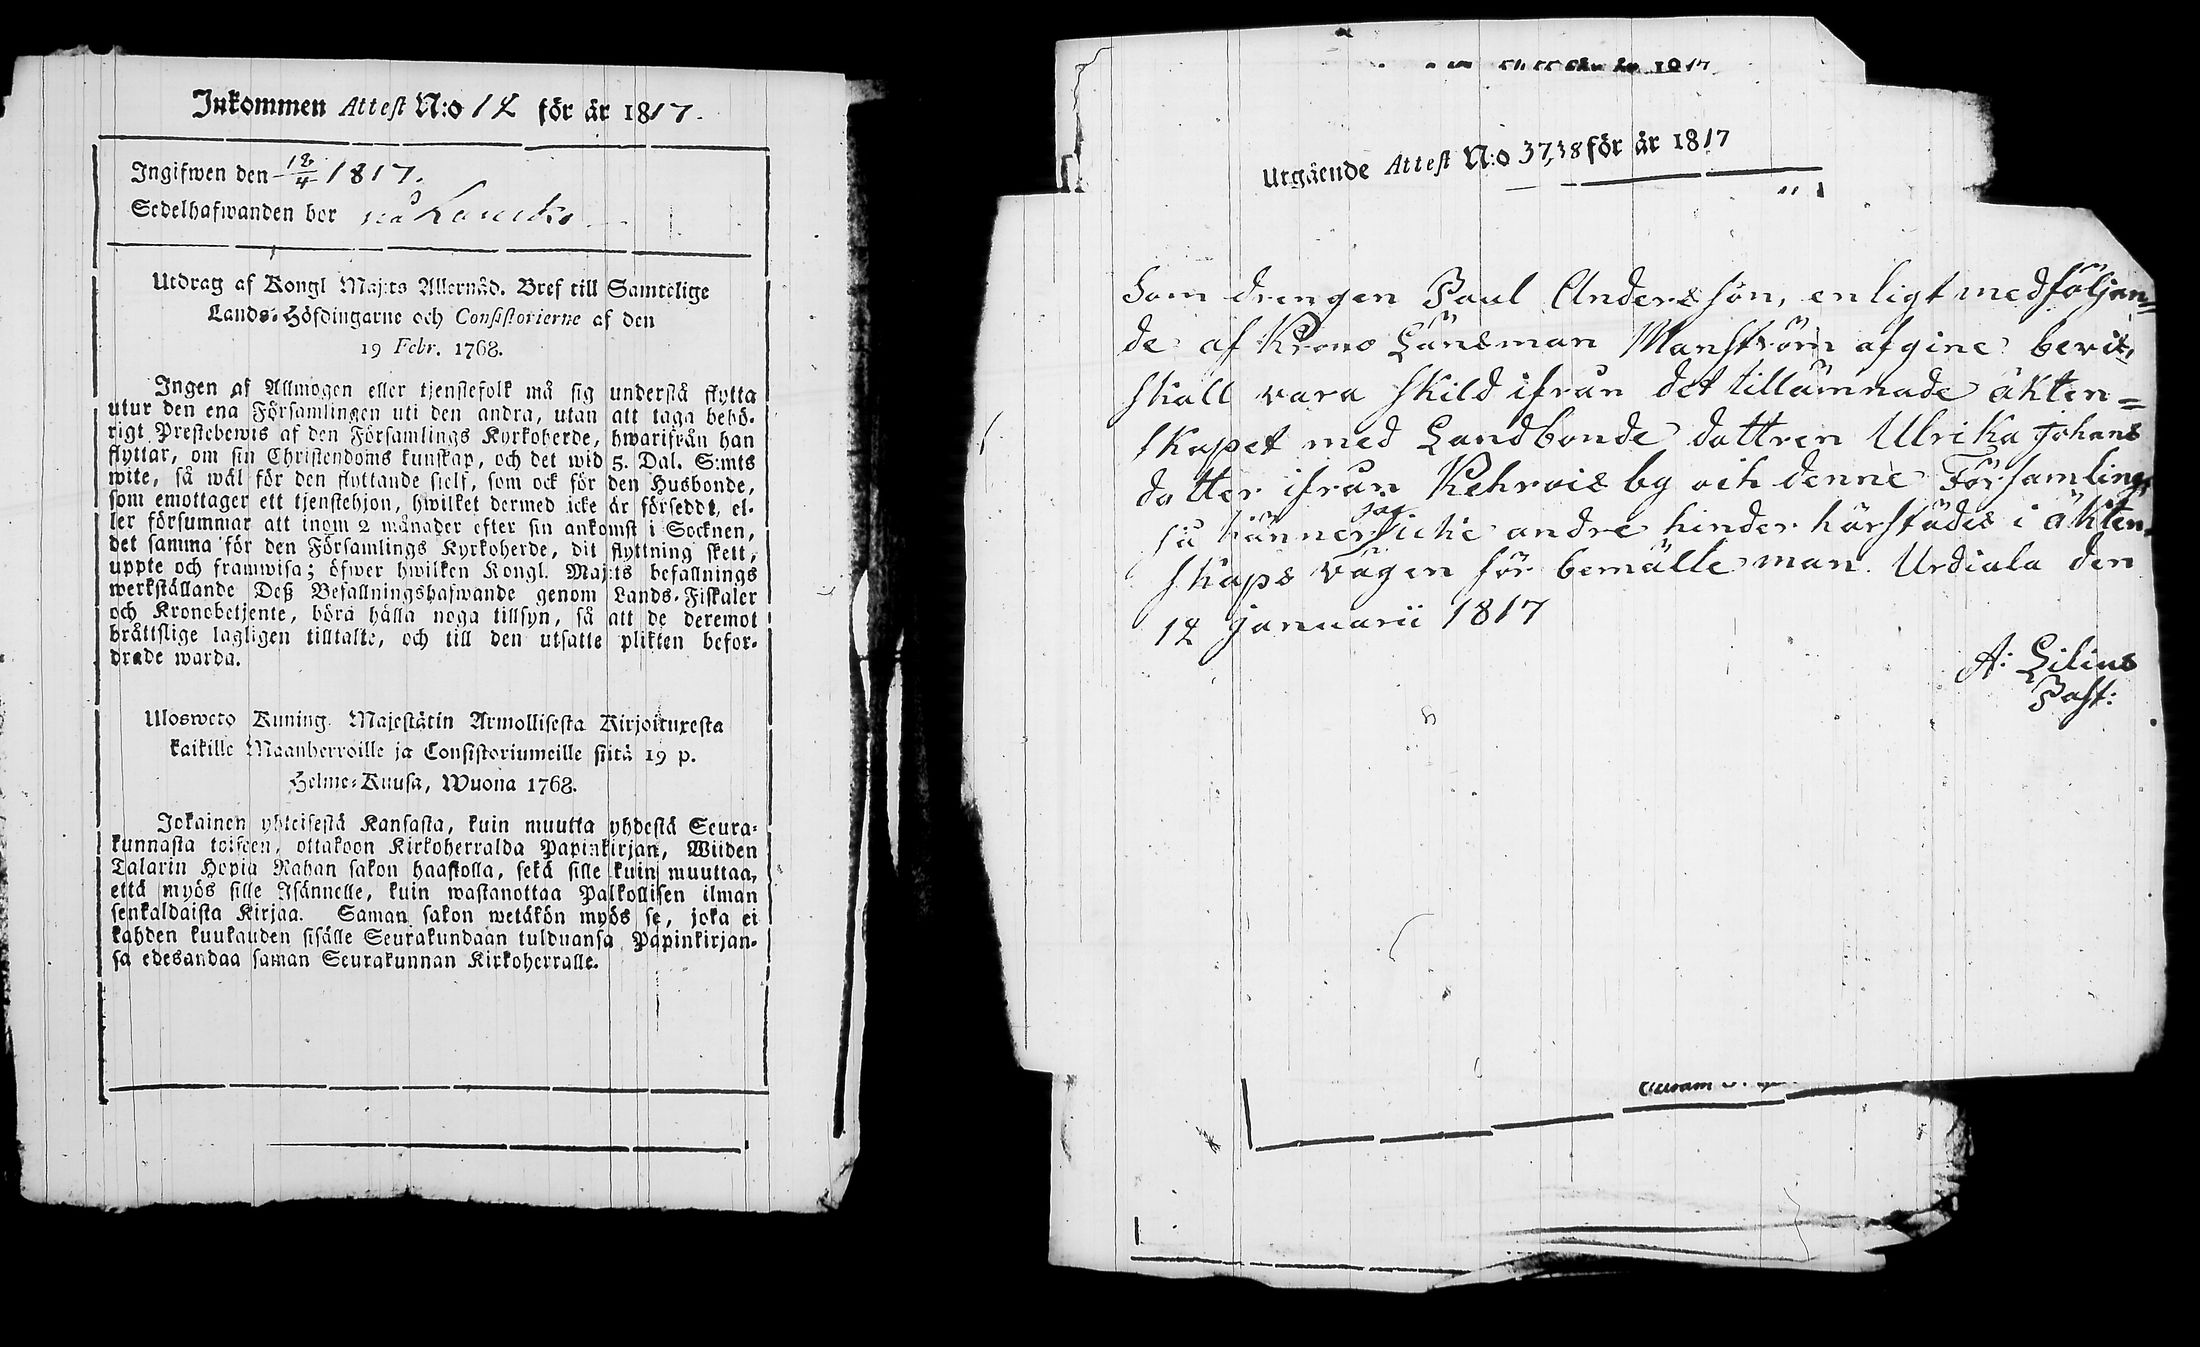 Inkommen Attest N:o 12 för år 1817.
Ingifwen den 18/4 1817.
Sedelhafwanden bor på
Utdrag af Kongl Maj:ts Allernåd. Bref till Samtelige
Lands-Höfdingarne och Consistorierne af den
19 Febr. 1768.
Ingen af Allmogen eller tjenstefolk må sig understå flytta
utur den ena Församlingen uti den andra, utan att taga behö-
rigt Prestebewis af den Församlings Kyrkoherde, hwarifrån han
flyttar, om sin Christendoms kunskap, och det wid 5. Dal. S:mts
wite, så wäl för den flyttande sielf, som ock för den Husbonde,
som emottager ett tjenstehjon, hwilket dermed icke är förseddt, el-
ler försummar att inom 2 månader efter sin ankomst i Socknen,
det samma för den Församlings Kyrkoherde, dit flyttning skett,
uppte och framwisa; öfwer hwilken Kongl. Maj:ts befallnings
werkställande Deß Befallningshafwande genom Lands-Fiskaler
och Kronobetjente, böra hålla noga tillsyn, så att de deremot
bråttslige lagligen tilltalte, och till den utsatte plikten befor-
drade warda.
Ulosweto Kuning. Majestätin Armollisesta Kirjoituxesta
kaikille Maanherroille ja Consistoriumeille siitä 19 p.
Helme-Kuusa, Wuona 1768.
Jokainen yhteisestä Kansasta, kuin muutta yhdestä Seura-
kunnasta toiseen, ottakoon Kirkoherralda Papinkirjan, Wiiden
Talarin Hopia Rahan sakon haastolla, sekä sille kuin muuttaa,
että myös sille Isännelle, kuin wastanottaa Palkollisen ilman
senkaldaista Kirjaa. Saman sakon wetäkön myös se, joka ei
kahden kuukauden sisälle Seurakundaan tulduansa Papinkirjan-
sa edesandaa saman Seurakunnan Kirkoherralle.
Utgående Attest N:o 37,38 för år 1817
Som drengen Paul Andersson, enligt medföljan=
de af Krono Länsman Manström afgine bevis,
skall vara skild ifrån det tillämnade äkten=
skapet med Landbonde dottren Ulrika Johans
dotter ifrån Kehrois by och denne Församling,
så känner jag icke andre hinder härstädes i äkten-
skaps vägen för bemälte man. Urdiala den
12 Januarii 1817
A: Lilius
Past: